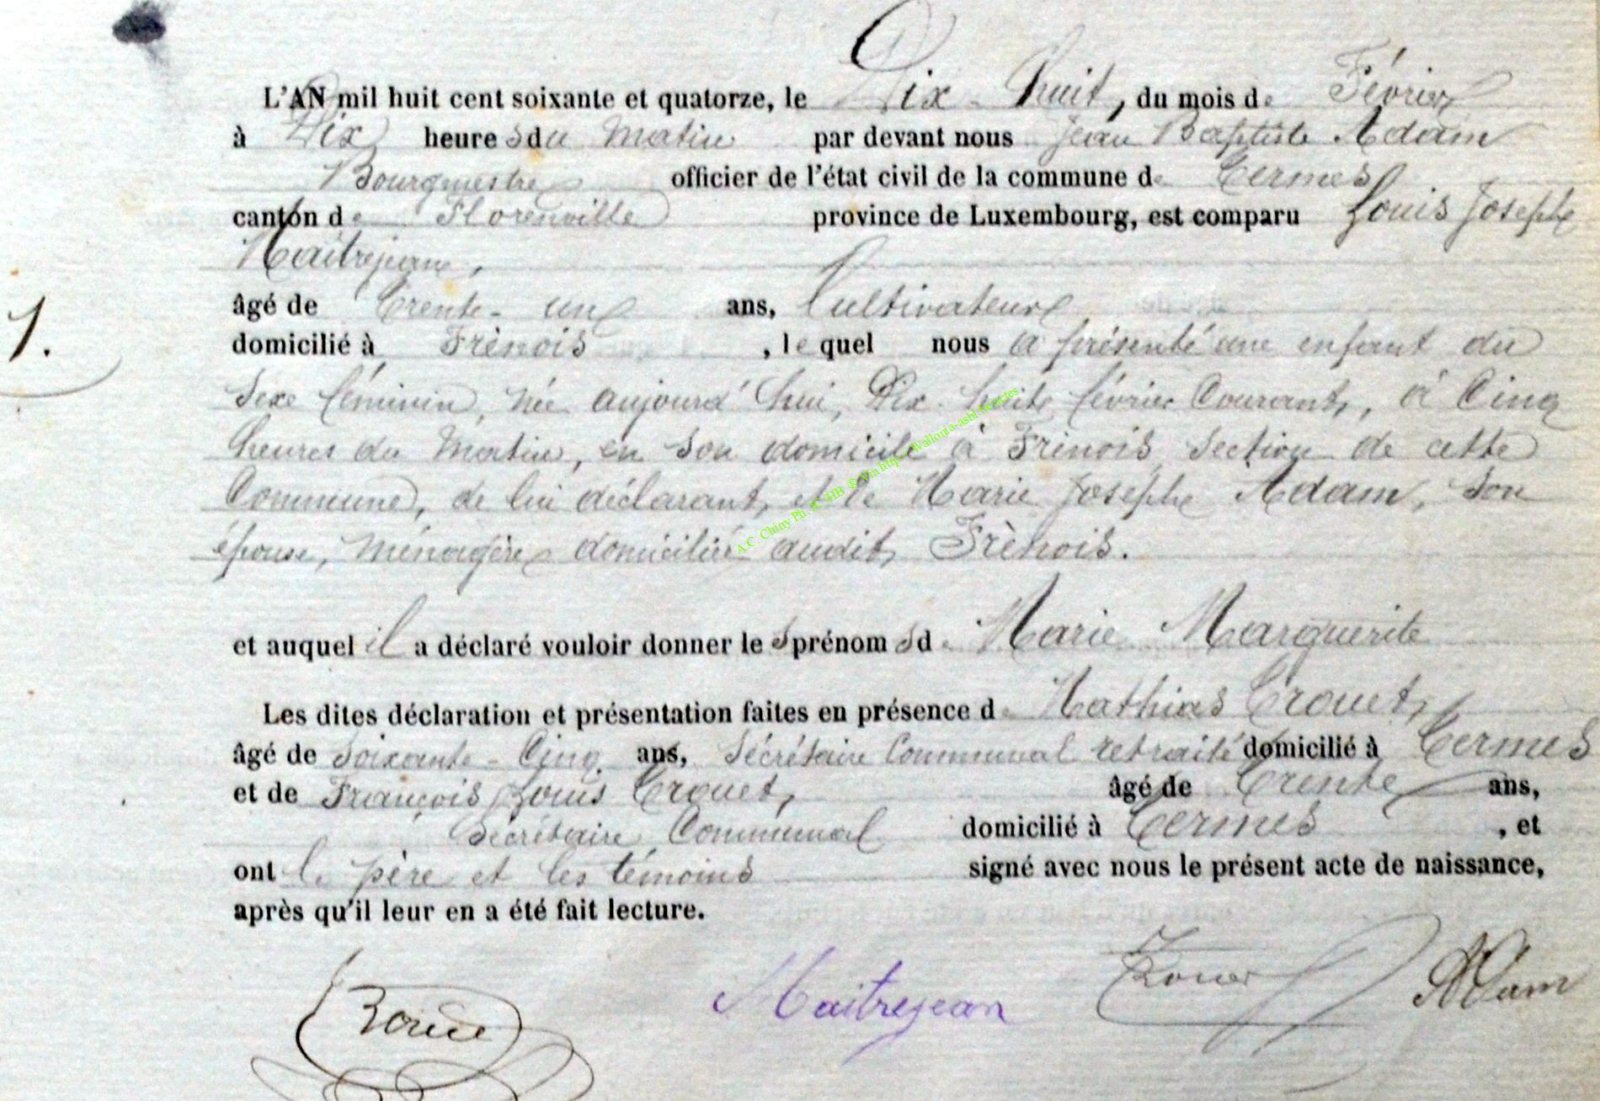 L'AN mil huit cent soixante et quatorze, le Dix-huit, du mois de Février
à Dix heures du Matin par devant nous Jean Baptiste Adam
Bourgmestre officier de l'état civil de la commune de Termes
canton de Florenville province de Luxembourg, est comparu Louis Joseph
Maitrejean,
âgé de Trente-un ans, Cultivateur
1.
domicilié à Frènois, lequel nous a présenté une enfant du
Sexe féminin, née aujourd'hui, Dix-huit février Courant, à Cinq
heures du Matin, en Son domicile à Frènois, Section de cette
Commune, de lui déclarant, et de Marie Josephe Adam, Son
épouse, Ménagère domiciliée audit Frènois.
et auquel il a déclaré vouloir donner les prénoms de Marie Marguérite
Les dites déclaration et présentation faites en présence de Mathias Crouet,
âgé de Soixante-Cinq ans, Sécrétaire Communal retraité domicilié à Termes
et de François Louis Crouet, âgé de Trente ans,
Secrétaire Communal domicilié à Termes, et
ont le père et les témoins signé avec nous le présent acte de naissance,
après qu'il leur en a été fait lecture.
Maitrejean Adam
A.C. Chiny